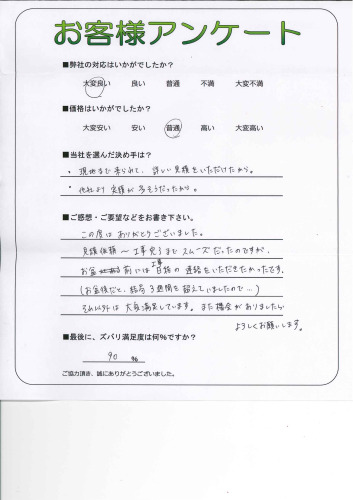 お客様アンケート
■弊社の対応はいかがでしたか?
大変良い 良い 普通 不満 大変不満
■価格はいかがでしたか?
大変安い 安い 普通 高い 大変高い
■当社を選んだ決め手は?
・現地まで来られて、詳しい見積をいただけたから。
・他社より見積が安そうだったから。
■ご感想・ご要望などをお書き下さい。
この度はありがとうございました。
見積依頼~工事完了までスムーズだったのですが、
お盆前には工事日程の連絡をいただきたかったです。
(お盆後だと、結局3週間を超えていましたので…)
それ以外は大変満足しています。また機会がありましたら
よろしくお願いします。
■最後に、ズバリ満足度は何%ですか?
90 %
ご協力頂き、誠にありがとうございました。